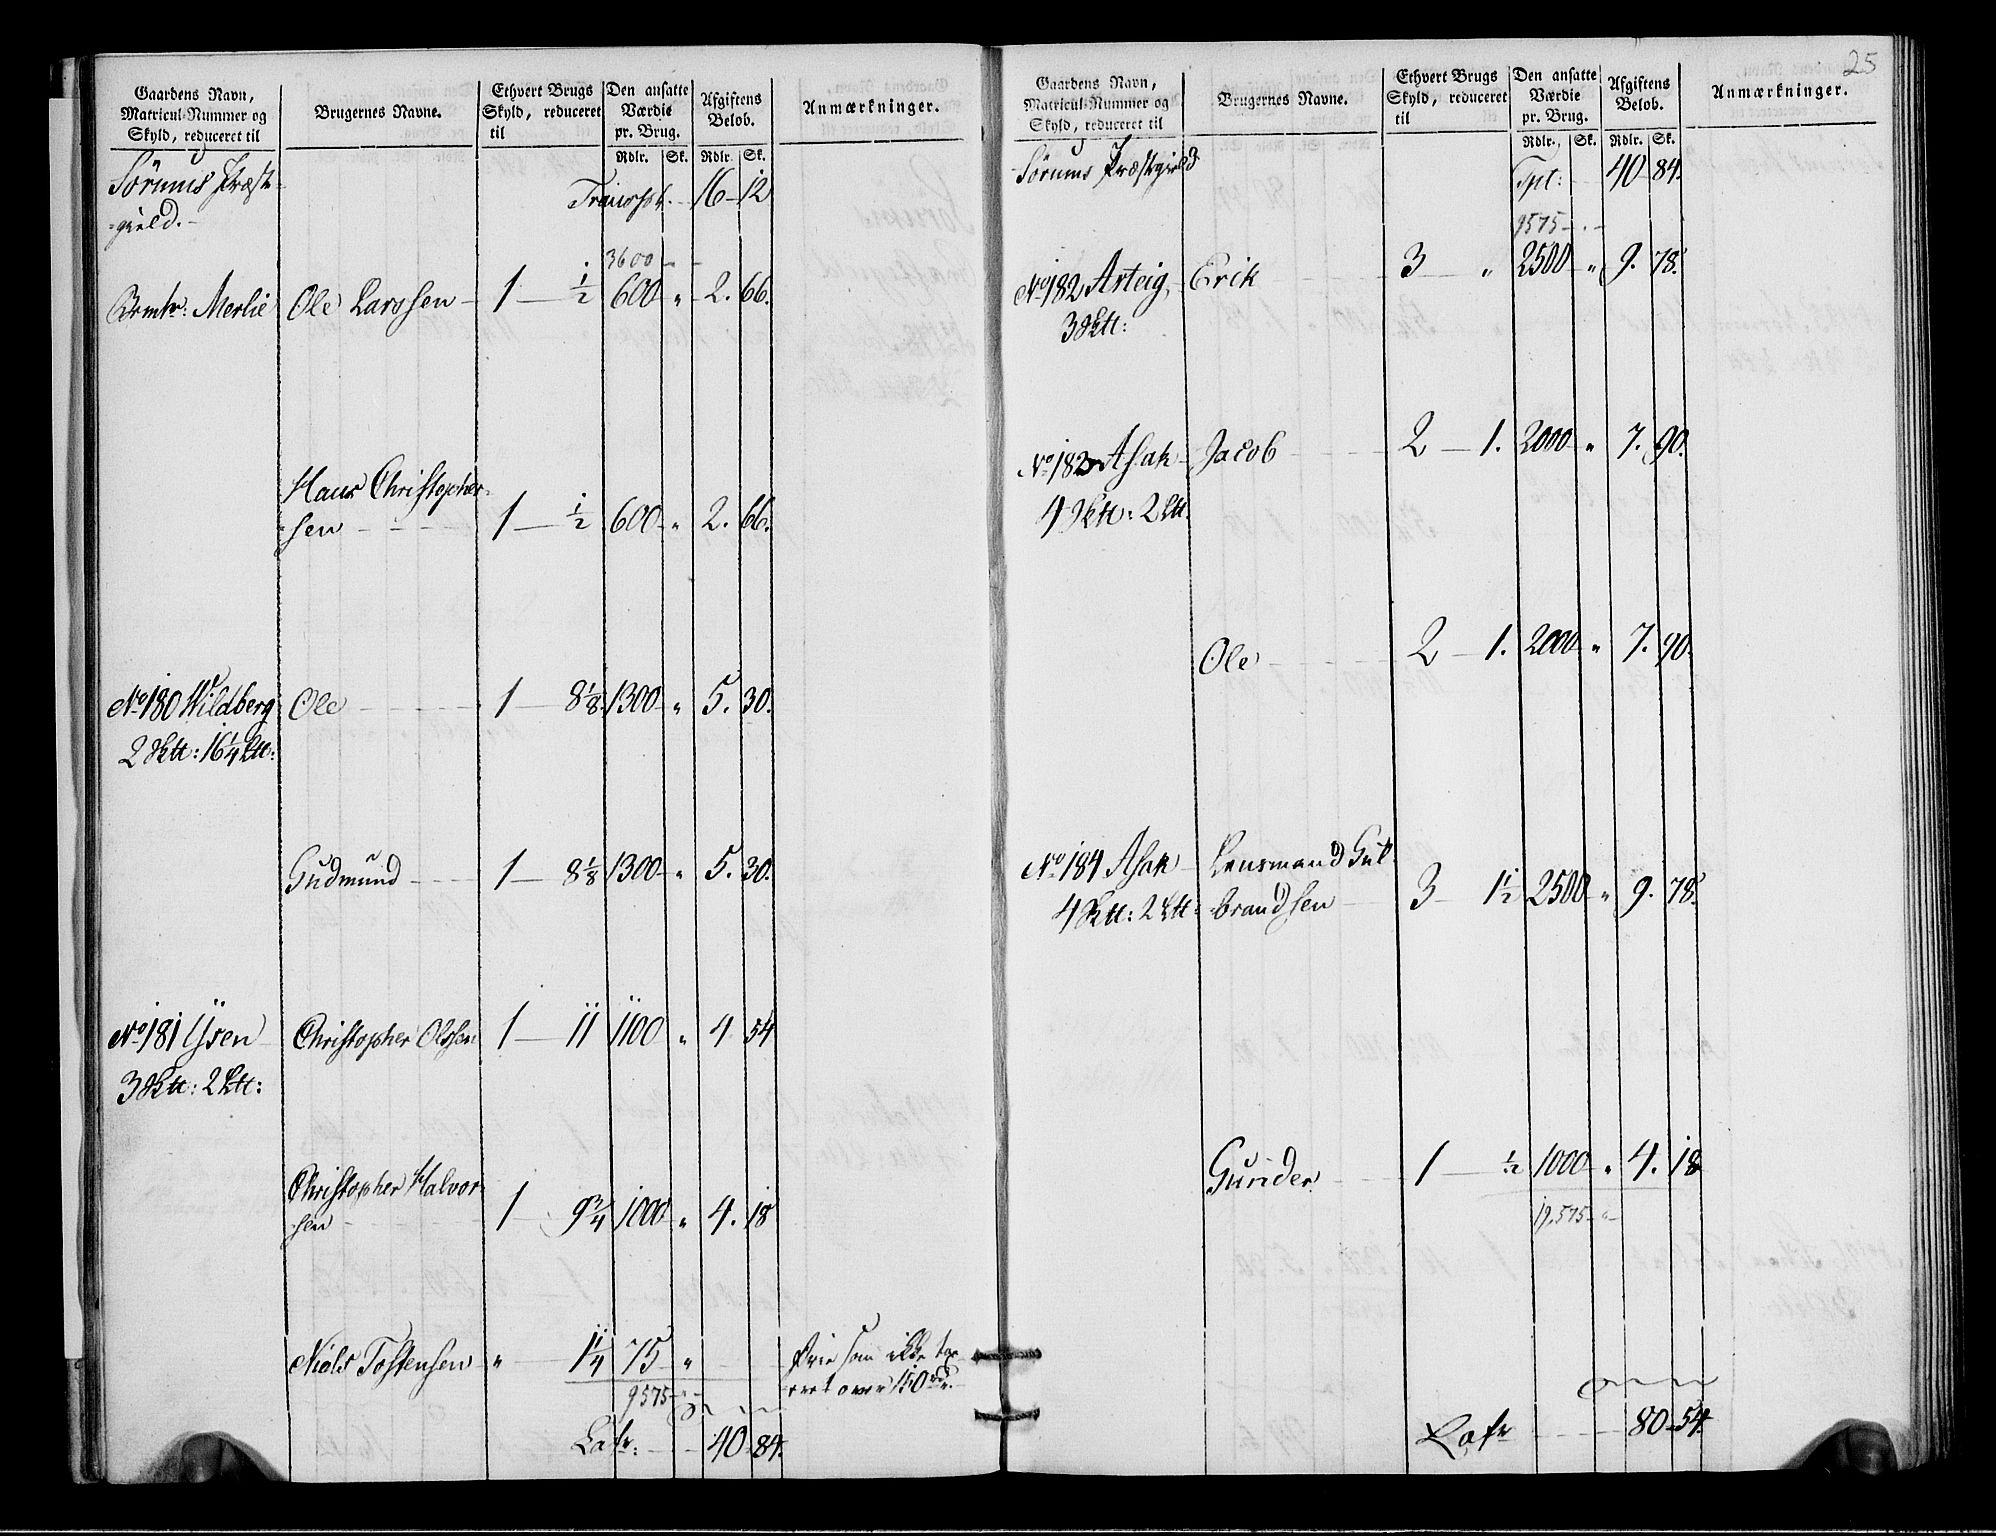 Gaardens Navn,
Matricul-Nummer og
Skyld, reduceret til
Brugernes Navne.
Ethvert Brugs
Skyld, reduceret
til
Den ansatte
Værdie
pr. Brug.
Rdlr. Sk.
Afgiftens
Beløb.
Rdlr. Sk.
Anmærkninger.
Sørums Præste-
gield.
Transpt. 16 12
3600
Merlie Ole Larssen 1 ½ 600 " 2. 66.
Hans Christopher-
sen 1 ½ 600 " 2. 66.
No 180 Wildberg Ole 1 8⅛ 1300 " 5. 30.
2 Sktt: 16¼ Ltt:
Gudmund 1 8⅛ 1300 " 5. 30.
No 181 Ysen Christopher Olssen 1 11 1100 " 4 54
3 Sktt: 2 Ltt:
Christopher Halvor-
sen 1 9¾ 1000 " 4. 18
Niels Tostensen " 1¼ 75 "
Frie som ikke tax-
eret over 150 rdr.
9575
Latr: 40 84.
25
Gaardens Navn,
Matricul-Nummer og
Skyld, reduceret til
Brugernes Navne.
Ethvert Brugs
Skyld, reduceret
til
Den ansatte
Værdie
pr. Brug.
Rdlr. Sk.
Afgiftens
Beløb.
Rdlr. Sk.
Anmærkninger.
Sørums Præstegield
Tpt: 40 84.
9575
No 182 Arteig, Erik 3 " 2500 " 9. 78.
3 Sktt:
No 183 Asak Jacob 2 1. 2000 " 7. 90.
4 Sktt: 2 Ltt.
Ole 2 1. 2000 " 7. 90.
No 184 Asak Lensmand Gul-
4 Sktt: 2 Ltt: brandsen 3 1½ 2500 " 9. 78.
Gunder 1 ½ 1000 " 4. 18
19,575
Latr 80 54.